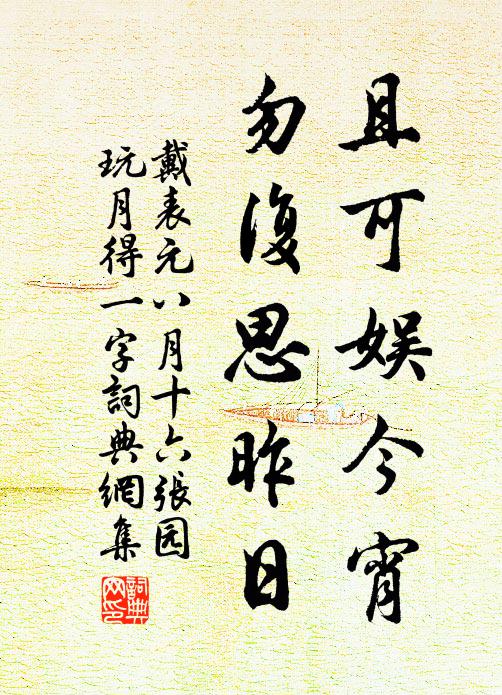 且可娱今宵
勿復思昨日
戴表元八月十六張园
玩月得一字詞典網集
詞典
网印